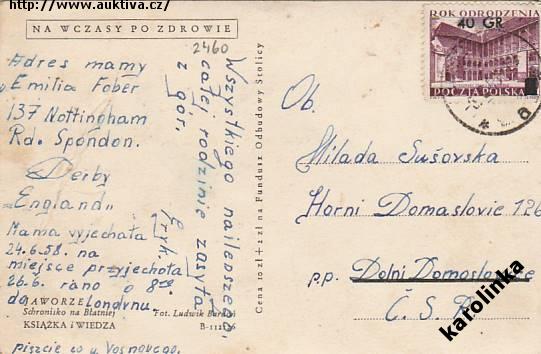 http://www.auktiva.cz/
NA WCZASY PO ZDROWIE
2460
Adres mamy
Emilia Fober
137 Nottingham
Rd. Spondon.
Derby
„England"
Mama vyjechała
24.6.58. na
miejsce przyjechała
26.6. rano o 8ce
do Londynu.
Wszystkiego najlepszego
całej rodzinie zasyła
z gór.
Eryk.
JAWORZE
Schronisko na Błatniej
Fot. Ludwik
KSIĄŻKA i WIEDZA
B-11
piszcie co u Vos novego.
Cena 10 zł + 2 zł na Fundusz Odbudowy Stolicy
ROK ODRODZENIA
40 GR
POCZTA POLSKA
a
Ob.
Milada Sušovska
Horni Domaslovie 126
p.p. Dolni Domaslovice
Č. S. R.
karolinka